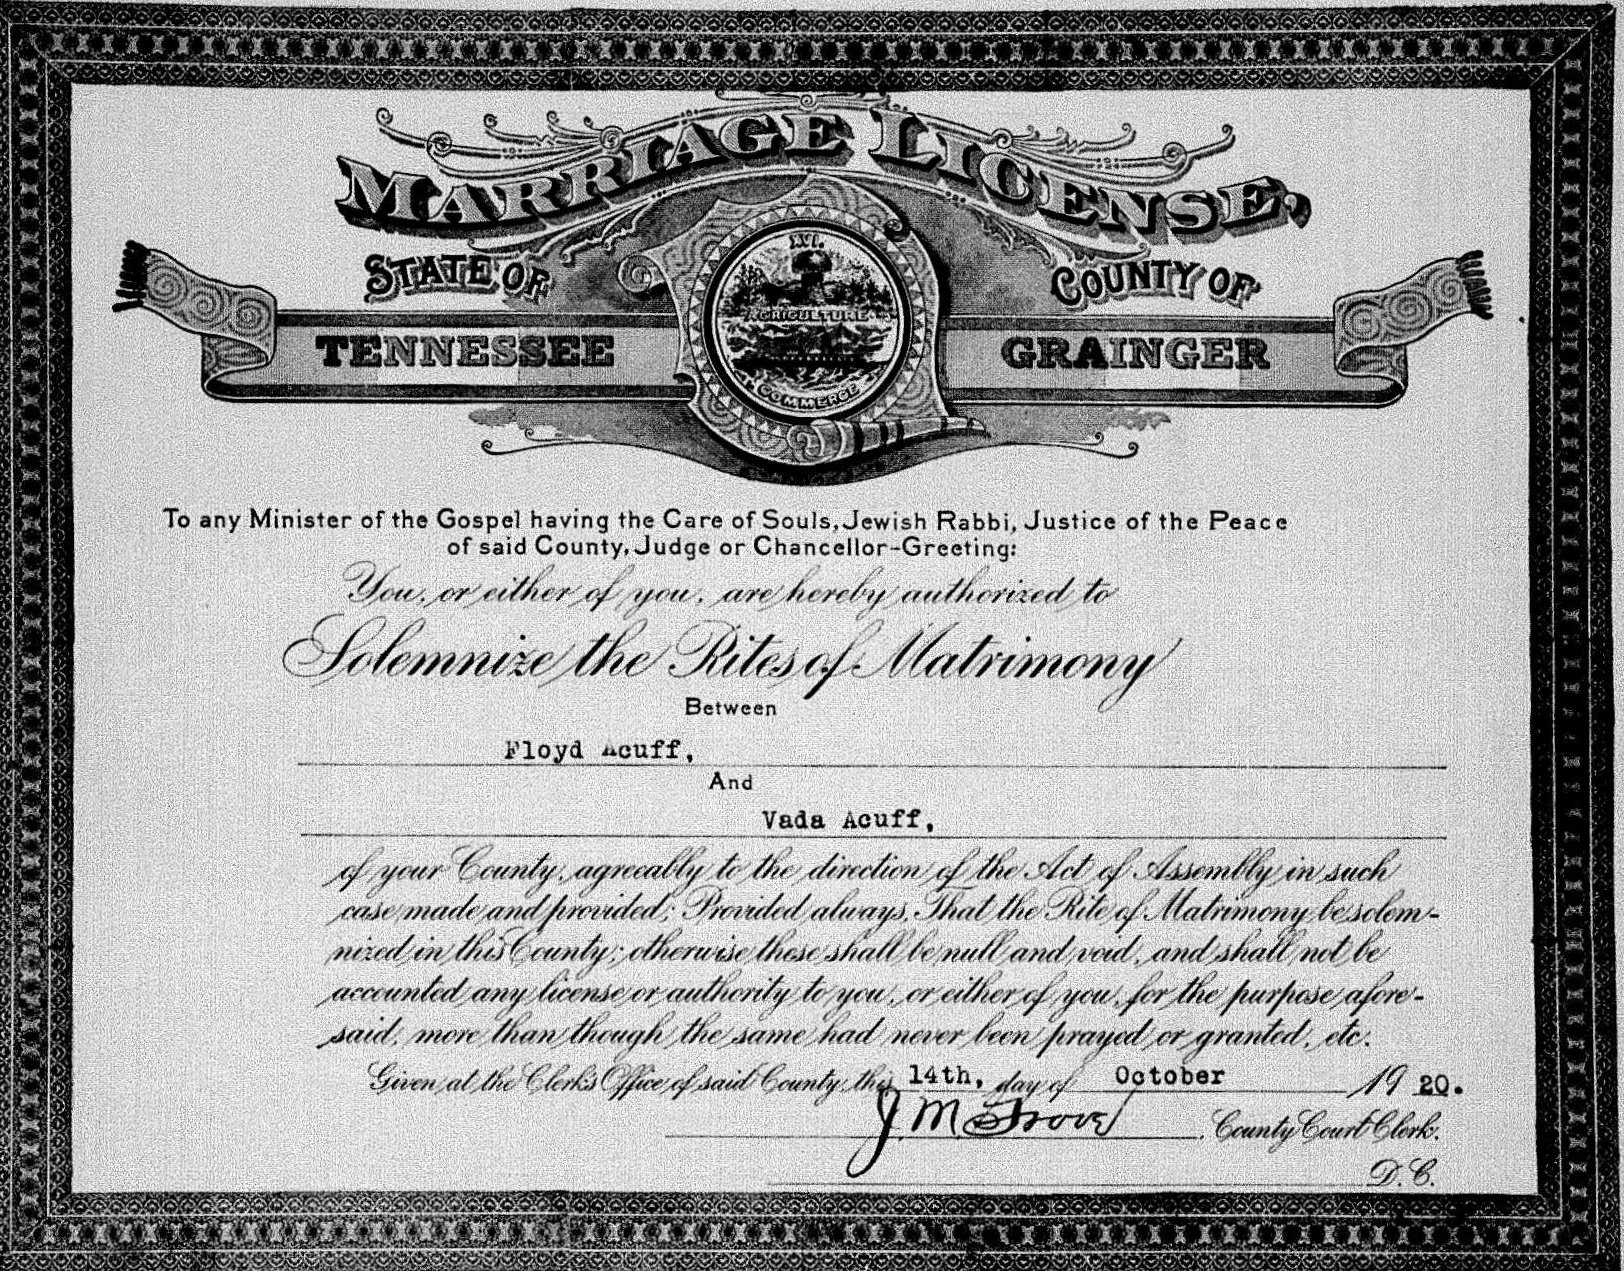 MARRIAGE LICENSE,
STATE OF
COUNTY OF
TENNESSEE
GRAINGER
XVI.
AGRICULTURE
COMMERCE
To any Minister of the Gospel having the Care of Souls, Jewish Rabbi, Justice of the Peace
of said County, Judge or Chancellor-Greeting:
You, or either of you, are hereby authorized to
Solemnize the Rites of Matrimony
Between
Floyd Acuff,
And
Vada Acuff,
of your County, agreeably to the direction of the Act of Assembly in such
case made and provided; Provided always, That the Rite of Matrimony be solem-
nized in this County; otherwise these shall be null and void, and shall not be
accounted any license or authority to you, or either of you, for the purpose afore-
said, more than though the same had never been prayed or granted, etc.
Given at the Clerk's Office of said County, this 14th, day of October 1920.
J. M. Grove County Court Clerk.
D. C.